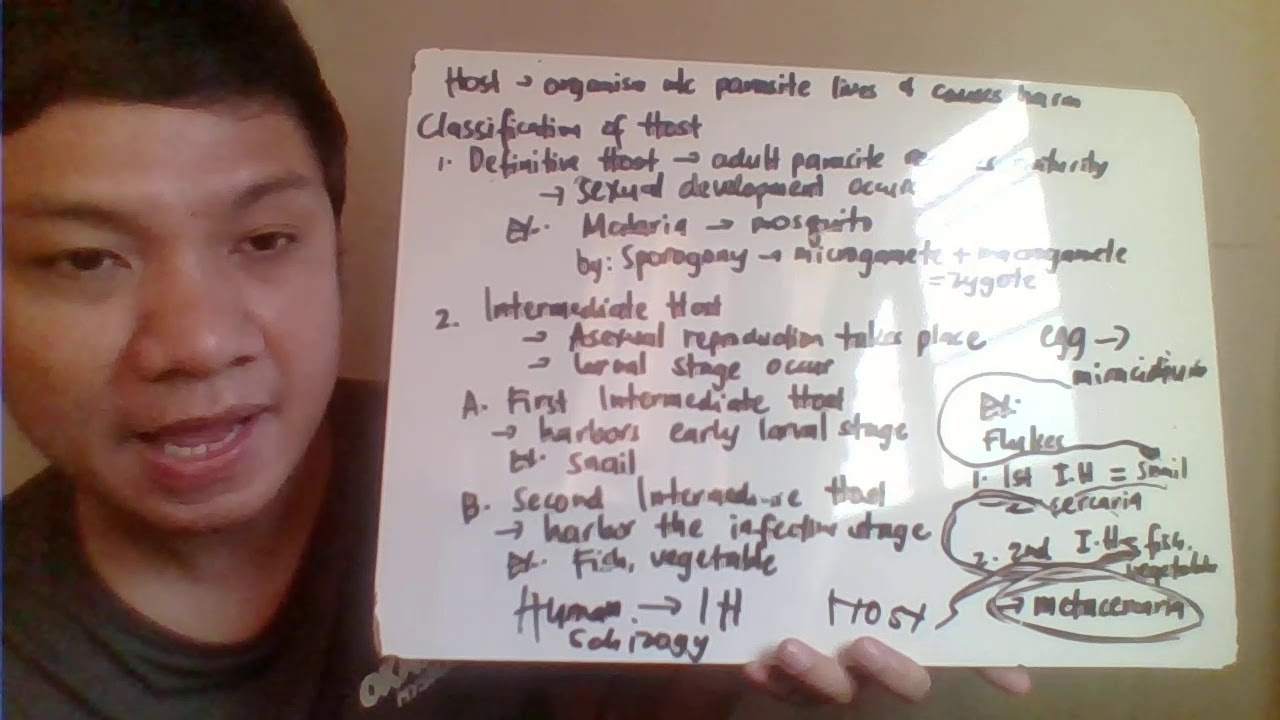 Host → organism w/c parasite lives & causes harm
Classification of Host
1. Definitive Host → adult parasite maturity
→ sexual development occur
Ex. Malaria → mosquito
by: Sporogony → microgamete + macrogamete
= zygote
2. Intermediate Host
→ Asexual reproduction takes place
→ larval stage occur
A. First Intermediate Host
→ harbors early larval stage
Ex. Snail
B. Second Intermediate Host
→ harbor the infective stage
Ex. Fish, vegetable
Human → IH
Schizogy
egg →
miracidium
Ex.
Flukes
1. 1st I.H = Snail
sercaria
2. 2nd I.H = fish,
vegetable
→ metacercaria
Host